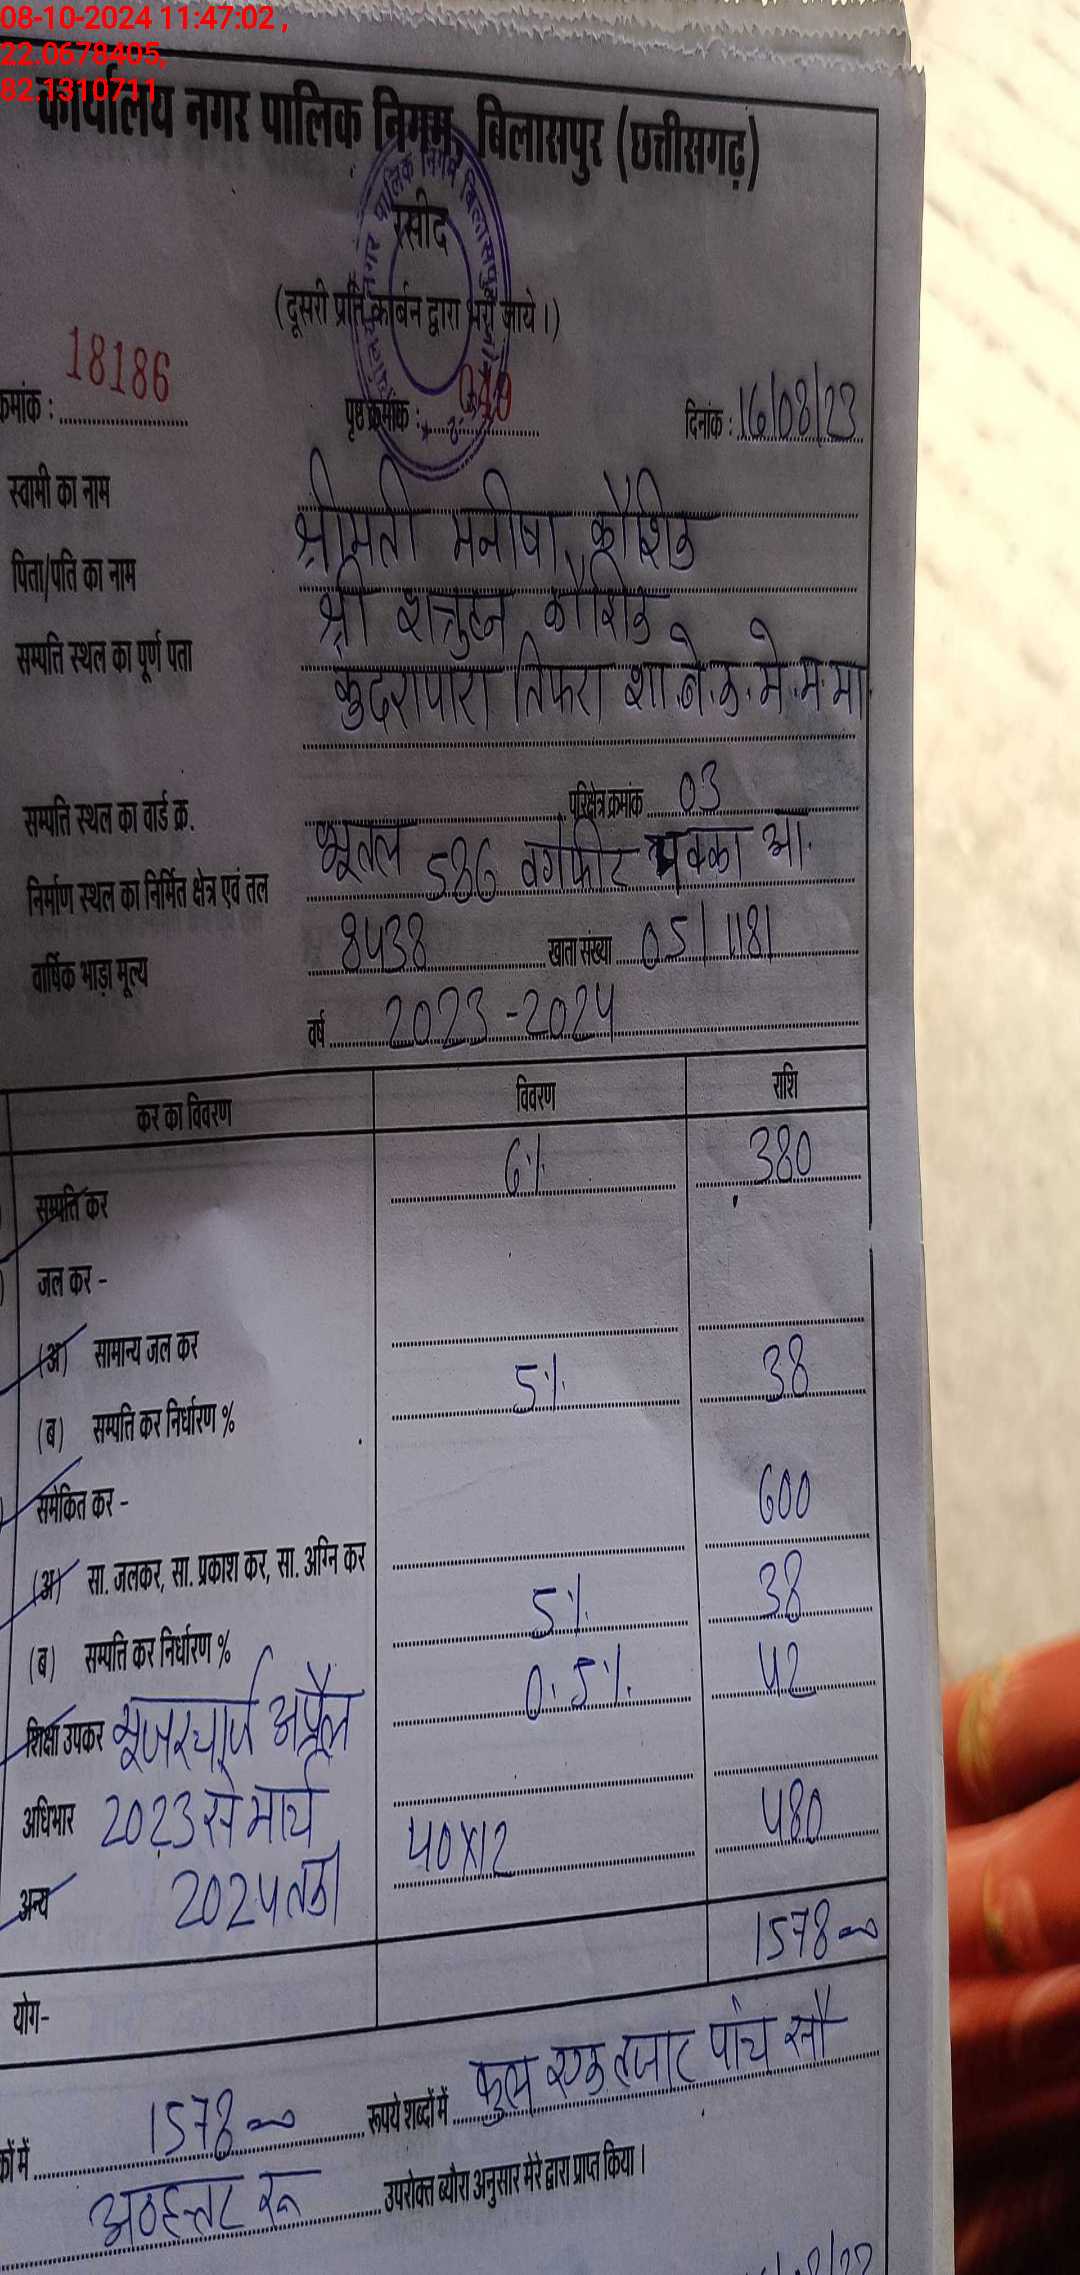 08-10-2024 11:47:02 ,
22.0678405,
82.1310711
कार्यालय नगर पालिक निगम, बिलासपुर (छत्तीसगढ़)
रसीद
(दूसरी प्रति कार्बन द्वारा भरी जाये।)
क्रमांक : 18186 पृष्ठ क्रमांक : 040 दिनांक : 16/08/23
स्वामी का नाम श्रीमती मनीषा कौशिक
पिता/पति का नाम श्री शत्रुहन कौशिक
सम्पत्ति स्थल का पूर्ण पता कुदरापारा तिफरा
सम्पत्ति स्थल का वार्ड क्र. परिक्षेत्र क्रमांक 03
निर्माण स्थल का निर्मित क्षेत्र एवं तल भूतल 586 वर्गफीट पक्का आ.
वार्षिक भाड़ा मूल्य 8438 खाता संख्या 05/1181
वर्ष 2023-2024
कर का विवरण विवरण राशि
सम्पत्ति कर 6% 380
जल कर -
(अ) सामान्य जल कर
(ब) सम्पत्ति कर निर्धारण % 5% 38
समेकित कर -
(अ) सा. जलकर, सा. प्रकाश कर, सा. अग्नि कर 600
(ब) सम्पत्ति कर निर्धारण % 5% 38
शिक्षा उपकर यूजरचार्ज अप्रैल 0.5% 42
अधिभार 2023 से मार्च
अन्य 2024 तक 40x12 480
योग- 1578
1578 रूपये शब्दों में कुल एक हजार पांच सौ
अठहत्तर रू उपरोक्त ब्यौरा अनुसार मेरे द्वारा प्राप्त किया।